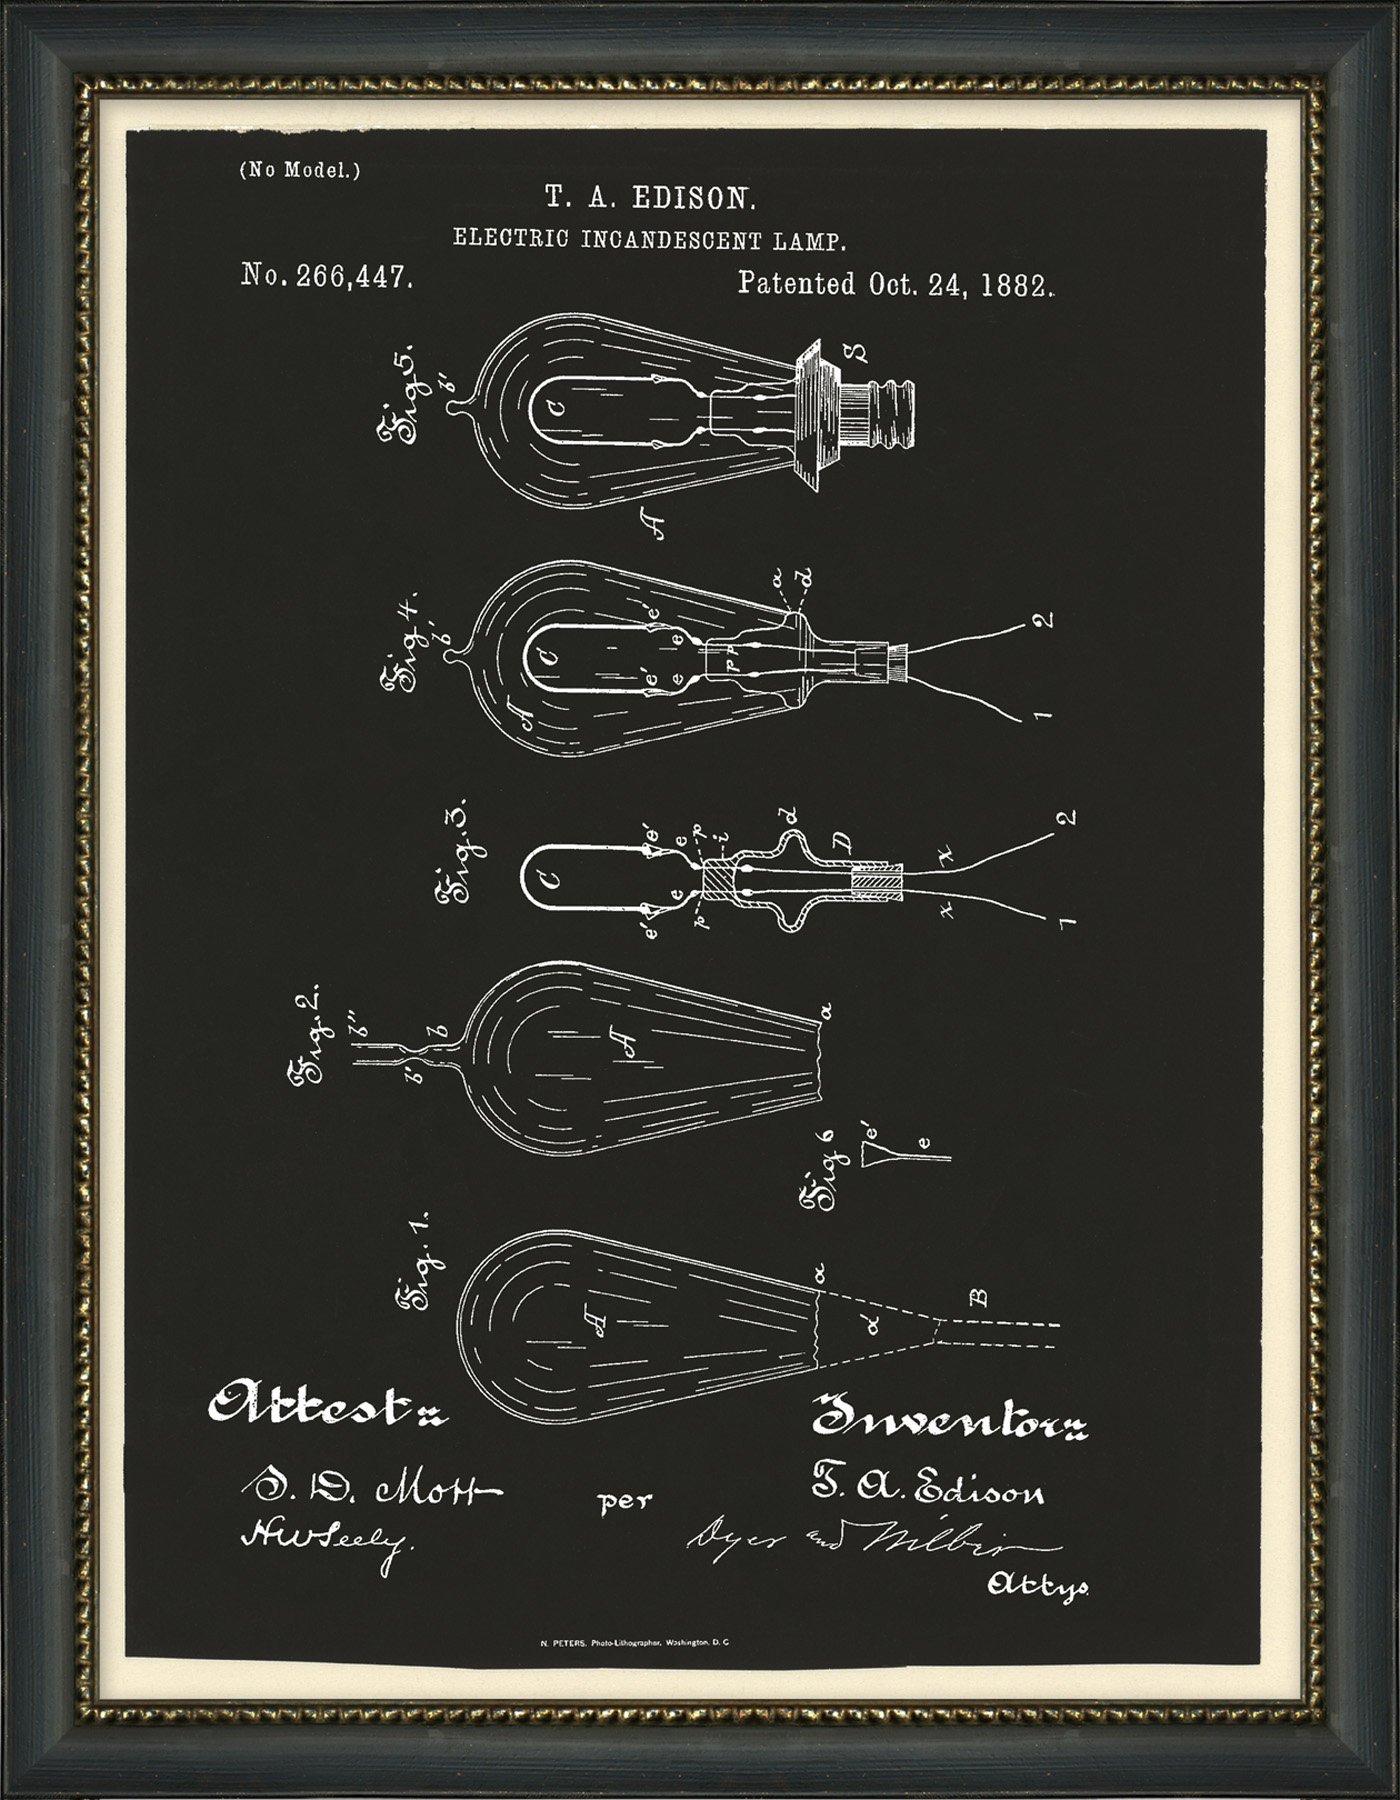 (No Model.)
T. A. EDISON.
ELECTRIC INCANDESCENT LAMP.
No. 266,447.
Patented Oct. 24, 1882.
Fig 5.
b'
C
A
S
Fig 4.
b'
C
A
e'
e
e'
e
p
p
a
d
2
1
Fig. 3.
C
e'
e
e'
e
p
p
i
d
D
x
x
2
1
Fig. 2.
b''
b
b'
A
a
Fig 6
e'
e
Fig. 1.
A
a
a'
B
Attest:
S. D. Mott
H W Seely.
Inventor:
T. A. Edison
per Dyer and Wilber
Attys.
N. PETERS, Photo-Lithographer, Washington, D. C.